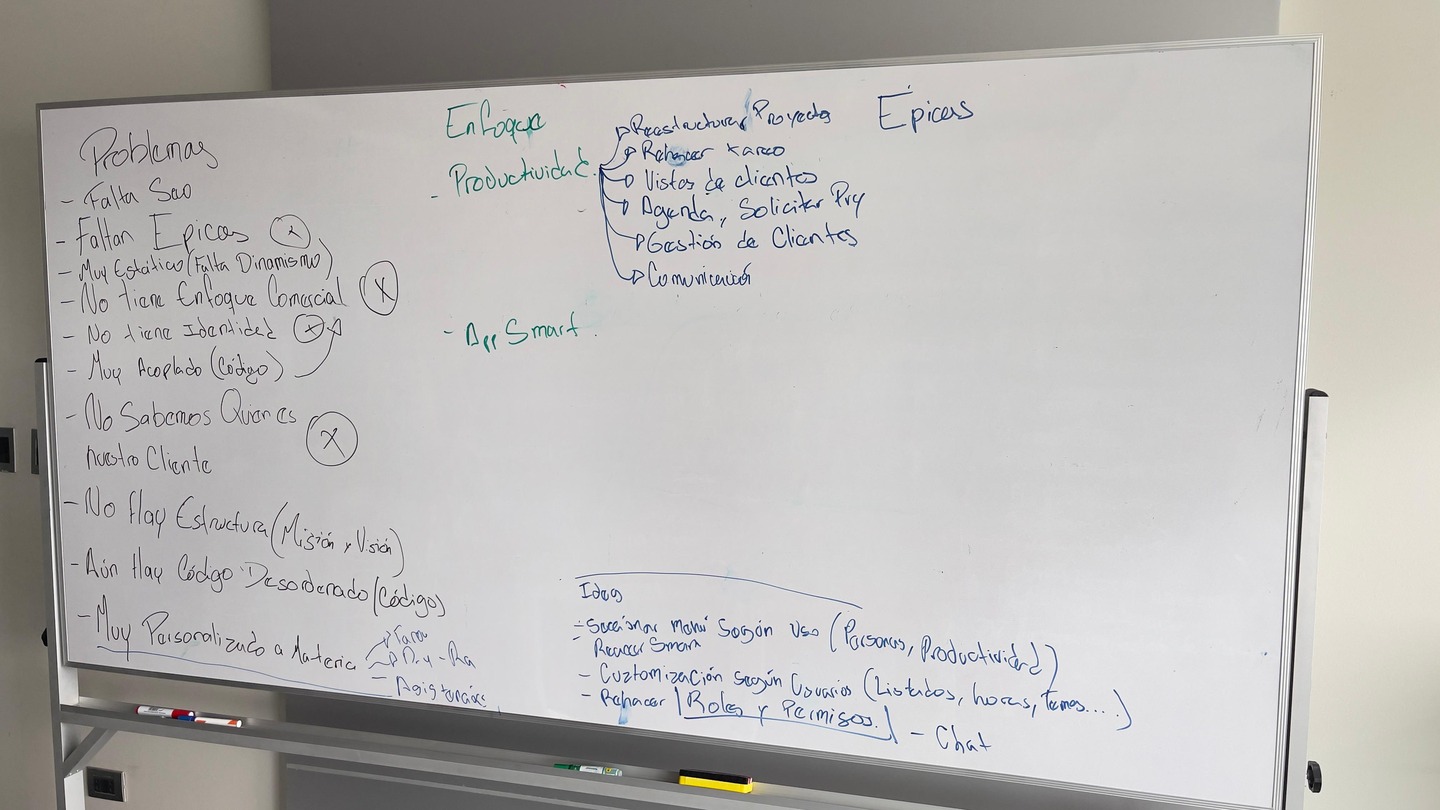 Problemas
- Falta Sao
- Faltan Epicas (x)
- Muy Estático (Falta Dinamismo)
- No tiene Enfoque Comercial (X)
- No tiene Identidad (x)
- Muy Acoplado (Código)
- No Sabemos Quien es
nuestro Cliente (X)
- No Hay Estructura (Misión y Visión)
- Aún Hay Código Desordenado (Código)
- Muy Personalizado a Materia
Tarea
Pry -
- Asistencias
Enfoque
- Productividad
Reestructurar Proyecto
Rehacer tarea
Vistas de clientes
Agenda, Solicitar Pry
Gestión de Clientes
Comunicación
- App Smart
Épicas
Ideas
- Seccionar menú Según Uso (Personas, Productividad)
- Reacer Smark
- Cuztomización según Usuarios (Listados, horas, temas....)
- Rehacer Roles y Permisos.
- Chat